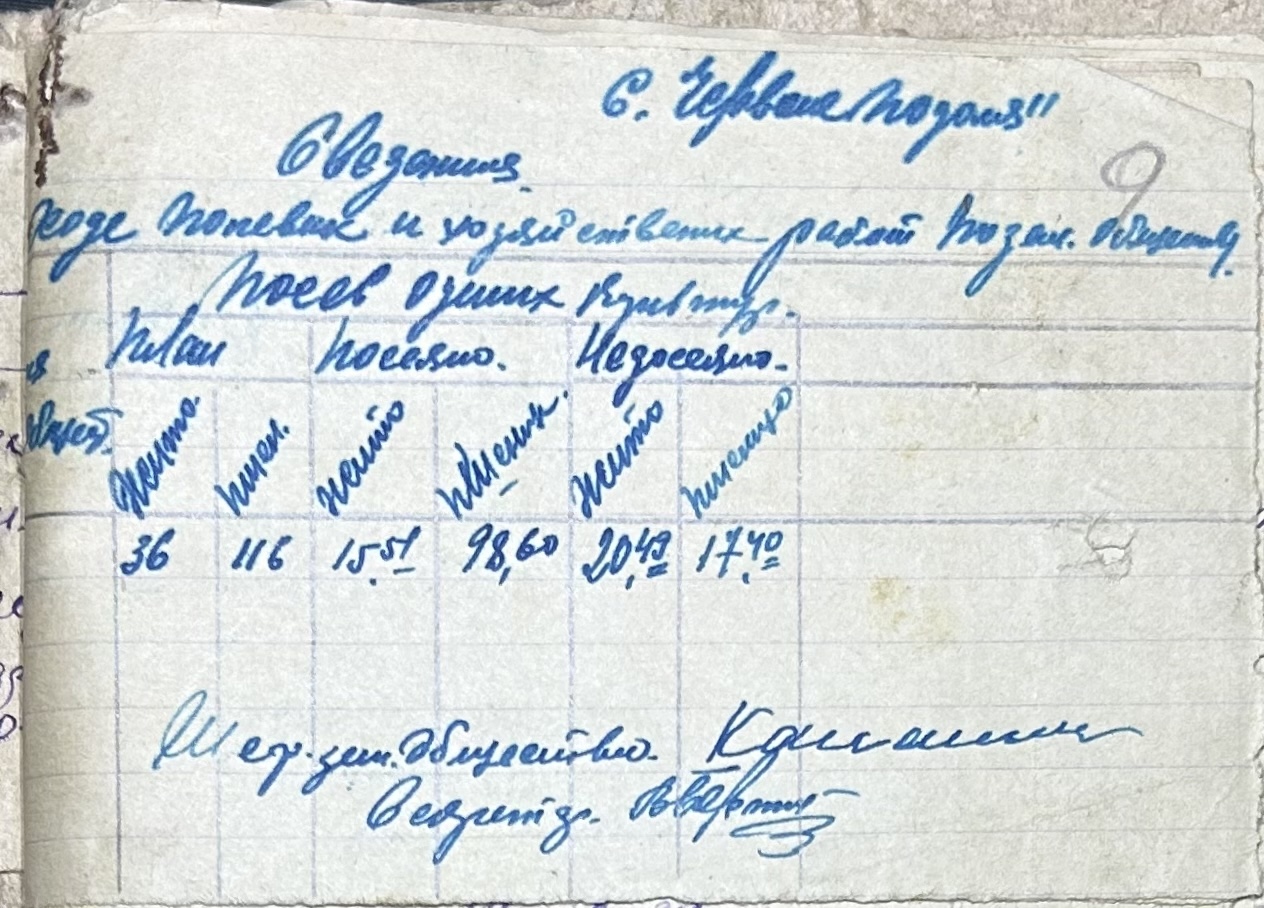 С. Червоне Подолля"
9
Сведения
ходе полевых и хозяйственых работ по зем. обществу.
Посев озимих культур.
План Посеяно. Недосеяно.
я общест.
Жито пшен. жито пшениц. жито пшеницо
36 116 15,51 98,60 20,49 17,40
зем. общества.
Секретар.